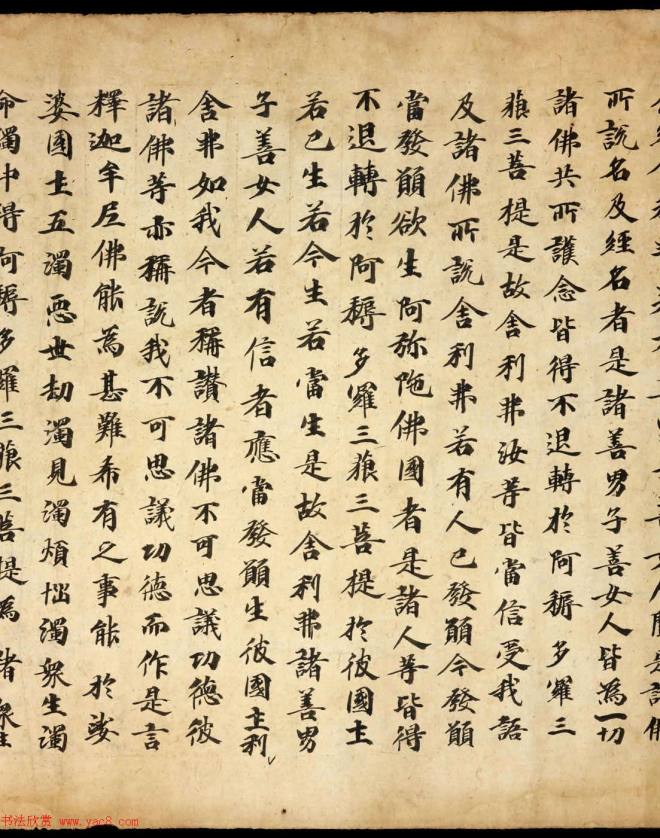 人聞是諸佛
所說名及經名者是諸善男子善女人皆為一切
諸佛共所護念皆得不退轉於阿耨多羅三
藐三菩提是故舍利弗汝等皆當信受我語
及諸佛所說舍利弗若有人已發願今發願
當發願欲生阿弥陁佛國者是諸人等皆得
不退轉於阿耨多羅三藐三菩提於彼國土
若已生若今生若當生是故舍利弗諸善男
子善女人若有信者應當發願生彼國土利
舍弗如我今者稱讚諸佛不可思議功德彼
諸佛等亦稱說我不可思議功德而作是言
釋迦牟尼佛能為甚難希有之事能於娑
婆國土五濁惡世劫濁見濁煩惱濁衆生濁
命濁中得阿耨多羅三藐三菩提為諸衆生
书法欣赏 www.yac8.com